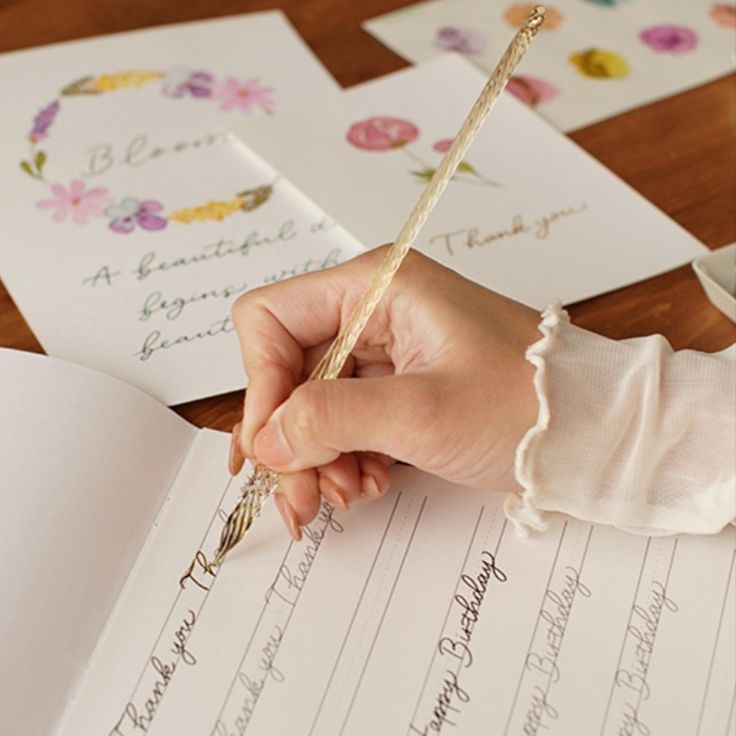 Bloom
A beautiful d
begins with
beauti
Thank you
Th
Thank you
Thank you
Thank you
Happy Birthday
Happy Birthday
Happy Birthday